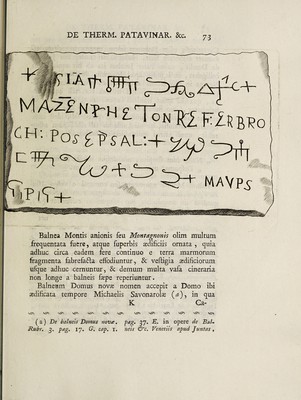 DE THERM. PATAVINAR. &c. 73
MAZENPHETONREFERBRO
CH: POSEPSAL:
MAVPS
Balnea Montis anionis seu Montagnonis olim multum
frequentata fuere, atque superbis ædificiis ornata, quia
adhuc circa eadem fere continuo e terra marmorum
fragmenta fabrefacta effodiuntur, & vestigia ædificiorum
usque adhuc cernuntur, & demum multa vasa cineraria
non longe a balneis sæpe reperiuntur.
Balneum Domus novæ nomen accepit a Domo ibi
ædificata tempore Michaelis Savonarolæ (a), in qua
K Ca-
(a) De balneis Domus novæ, pag. 37. E. in opere de Bal-
Rubr. 3. pag. 17. G. cap. 1. neis &c. Venetiis apud Juntas.